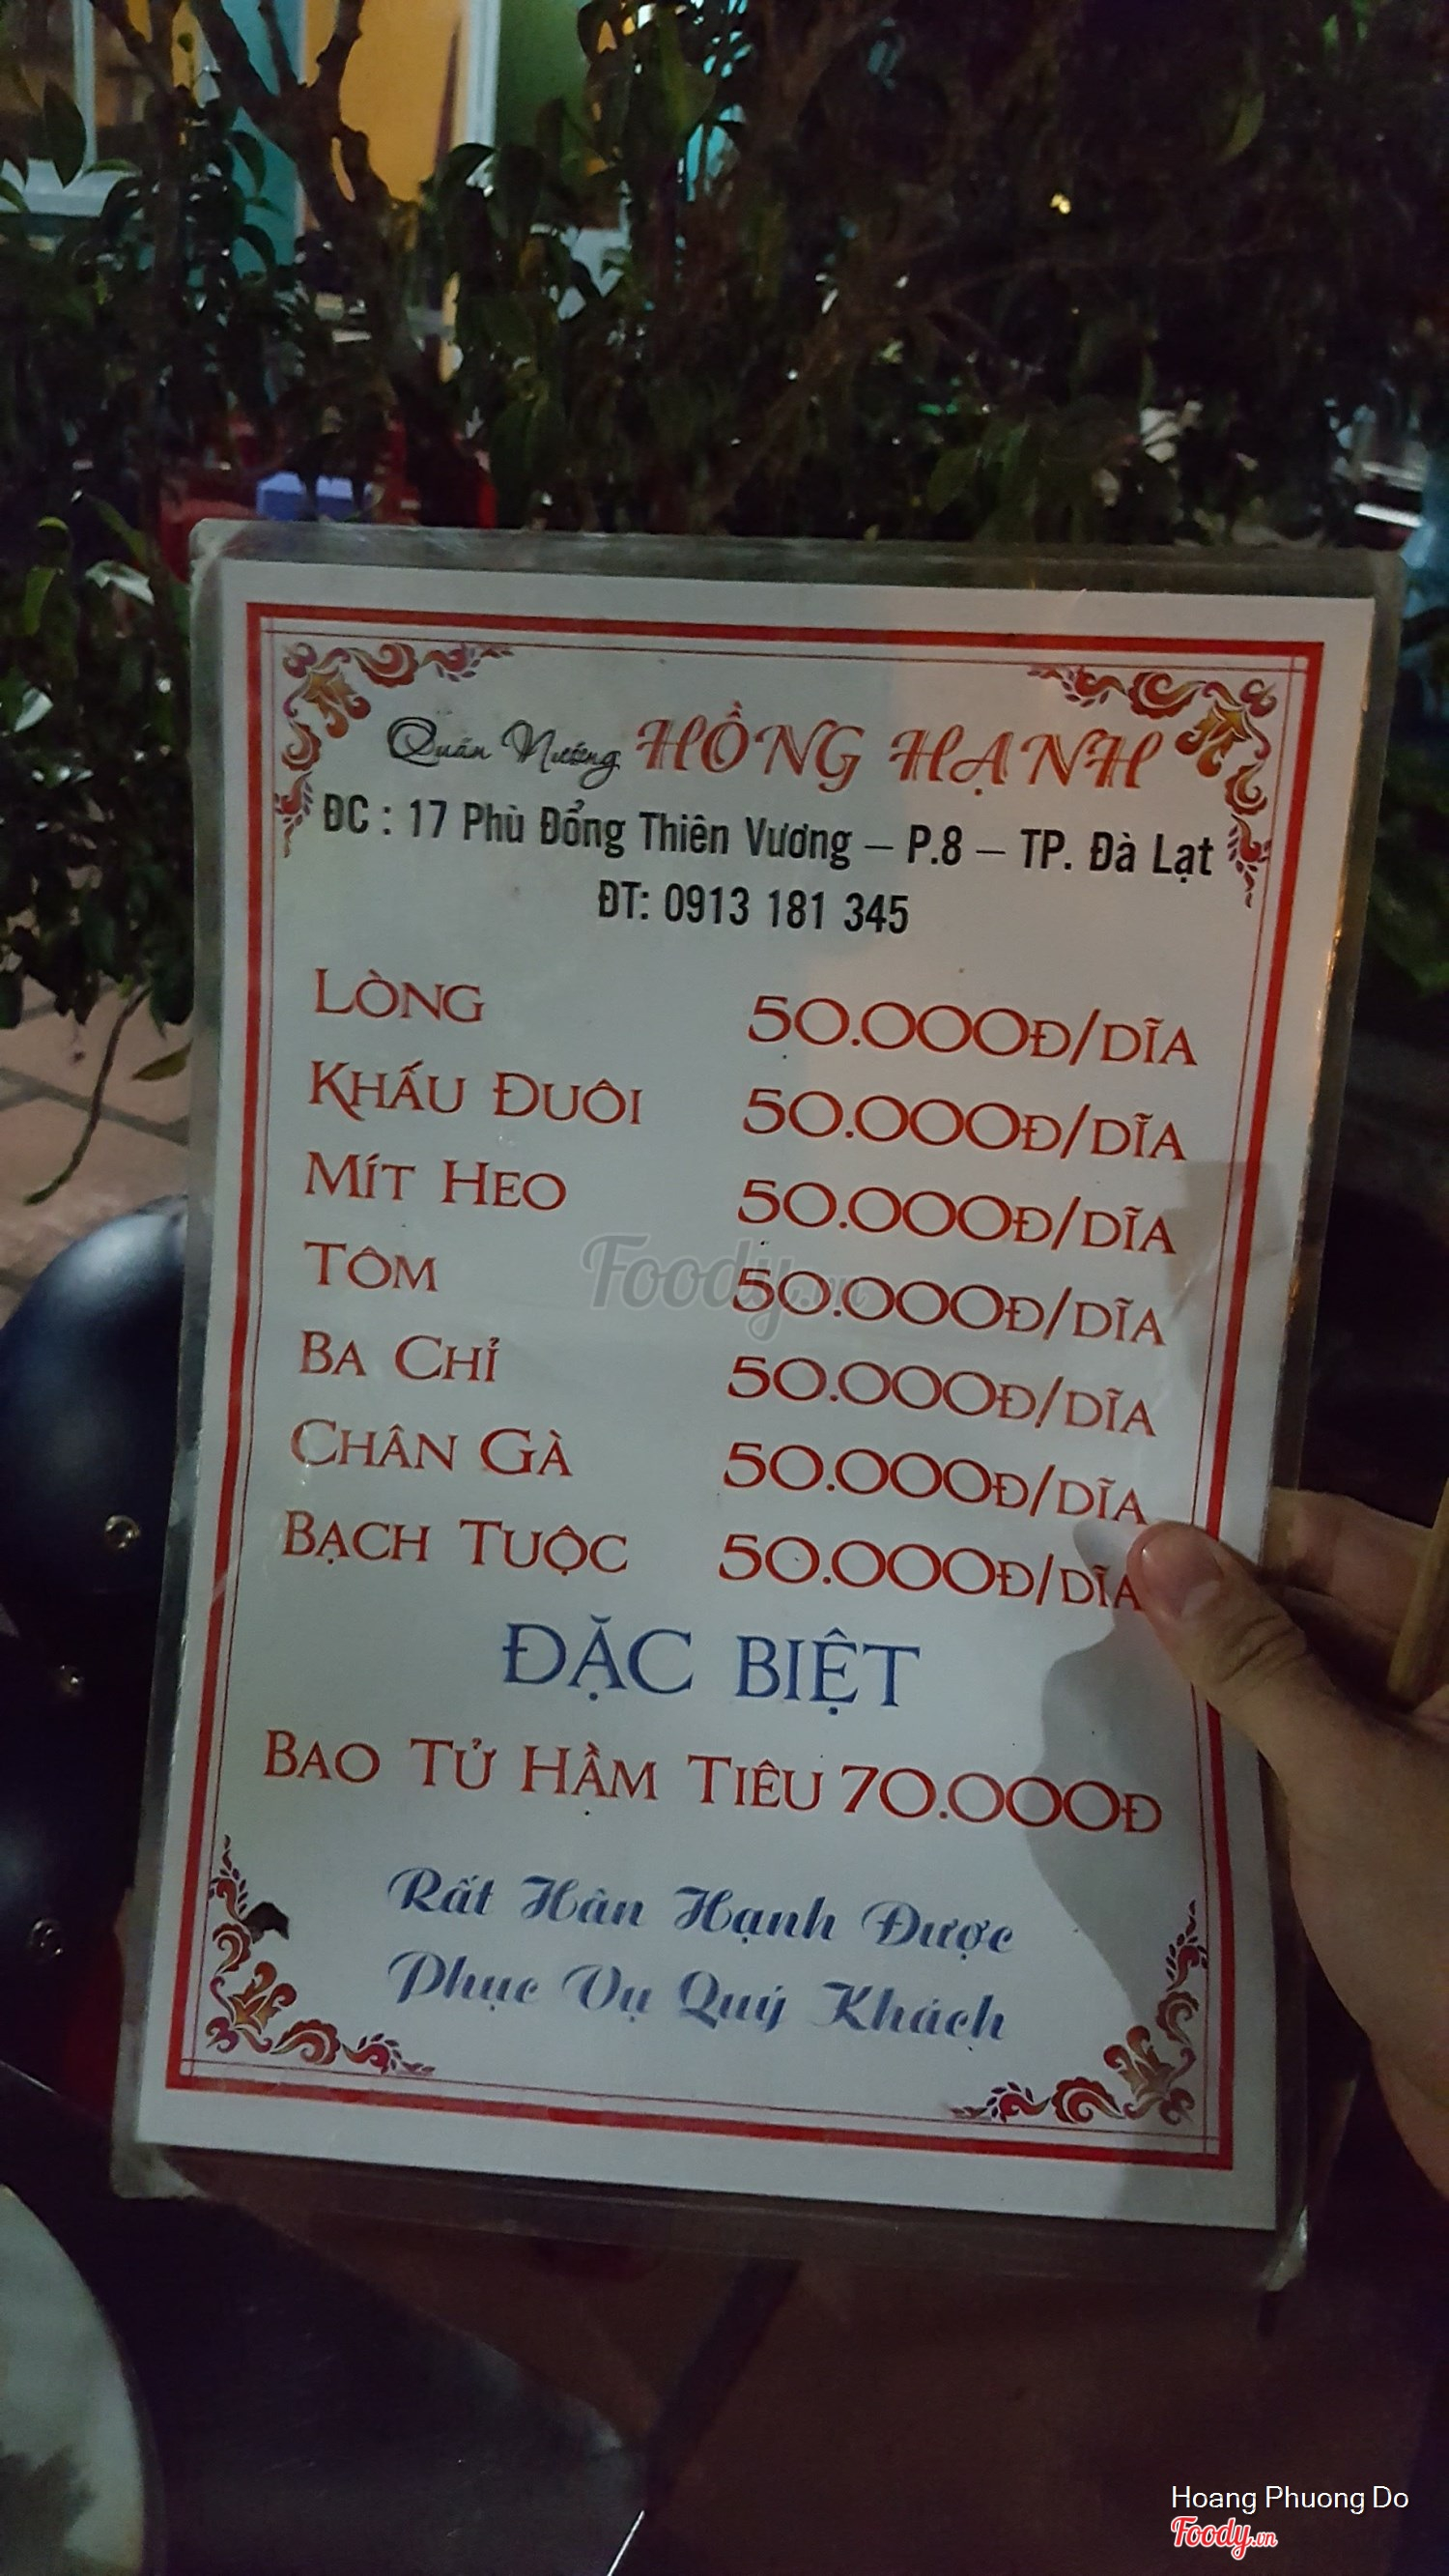 Quán Nướng HỒNG HẠNH
ĐC : 17 Phù Đổng Thiên Vương – P.8 – TP. Đà Lạt
ĐT: 0913 181 345
LÒNG 50.000Đ/DĨA
KHẤU ĐUÔI 50.000Đ/DĨA
MÍT HEO 50.000Đ/DĨA
TÔM 50.000Đ/DĨA
BA CHỈ 50.000Đ/DĨA
CHÂN GÀ 50.000Đ/DĨA
BẠCH TUỘC 50.000Đ/DĨA
ĐẶC BIỆT
BAO TỬ HẦM TIÊU 70.000Đ
Rất Hân Hạnh Được
Phục Vụ Quý Khách
Foody.vn
Hoang Phuong Do
Foody.vn